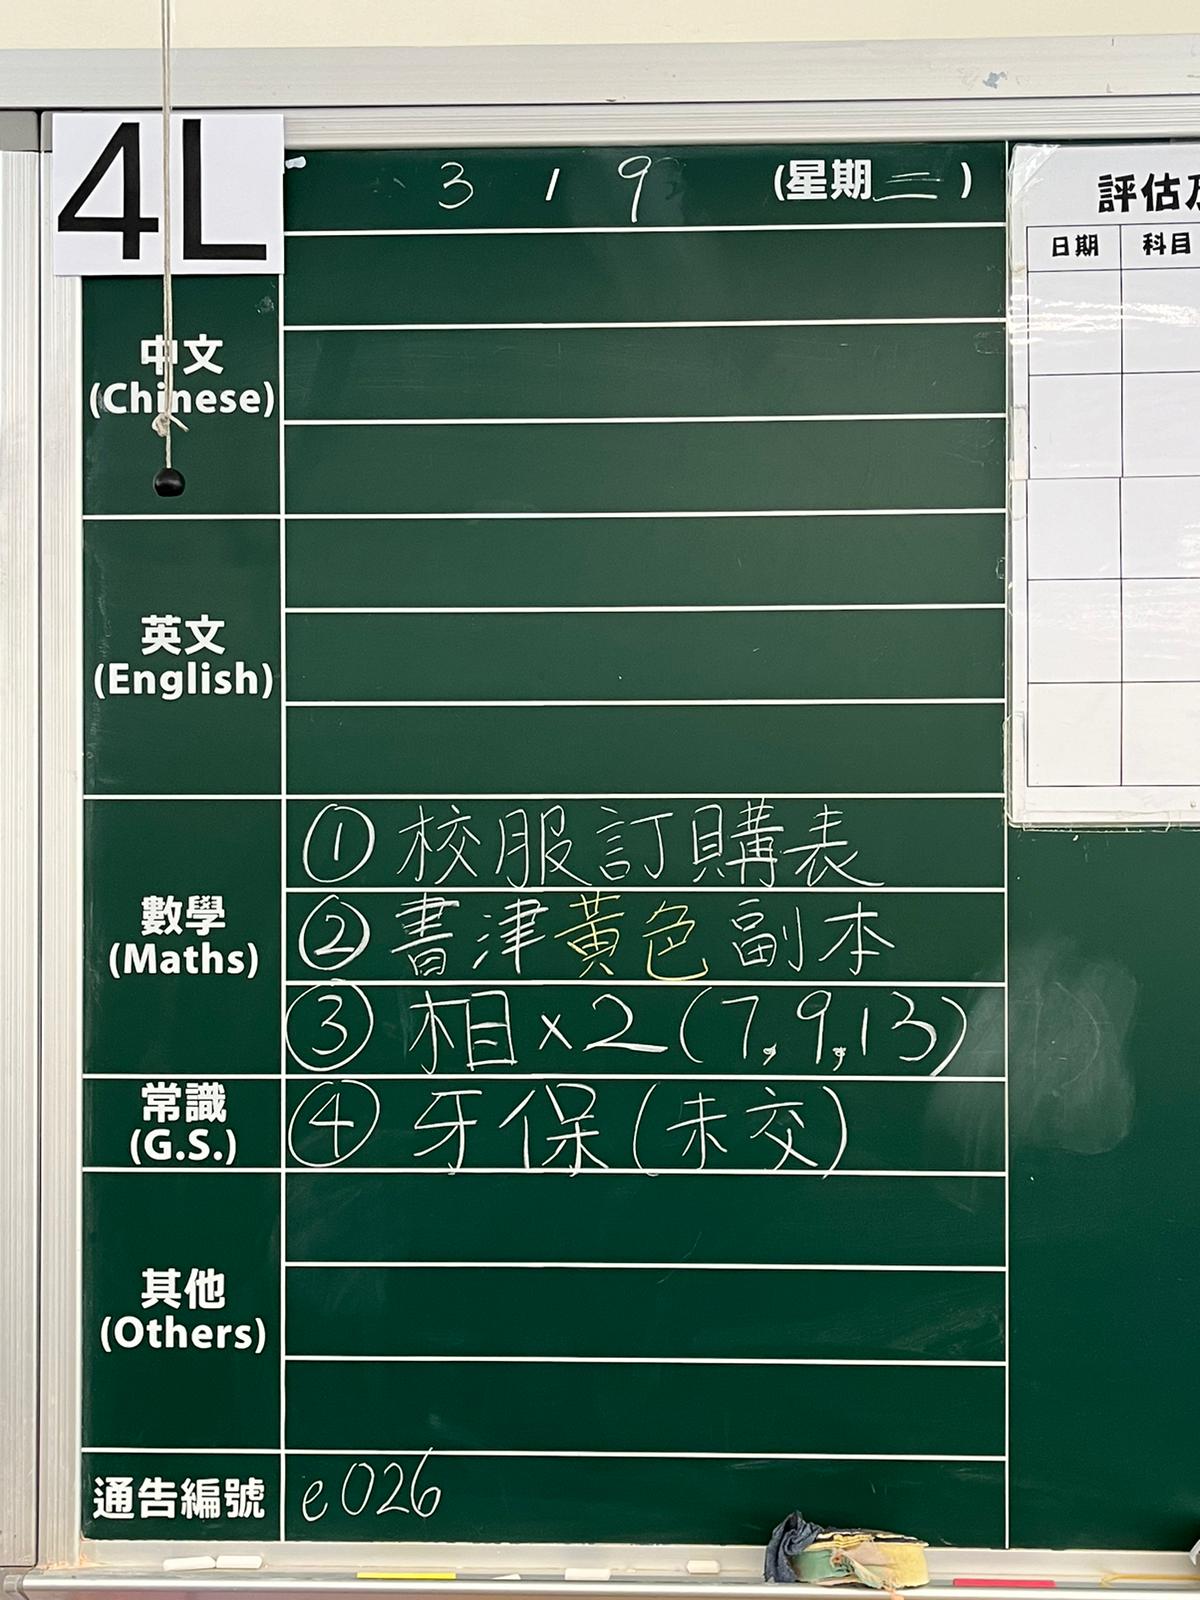 4L
3 / 9 (星期二)
評估及
日期 科目
中文
(Chinese)
英文
(English)
數學
(Maths)
① 校服訂購表
② 書津黃色副本
③ 相x2(7,9,13)
常識
(G.S.)
④ 牙保(未交)
其他
(Others)
通告編號 e026